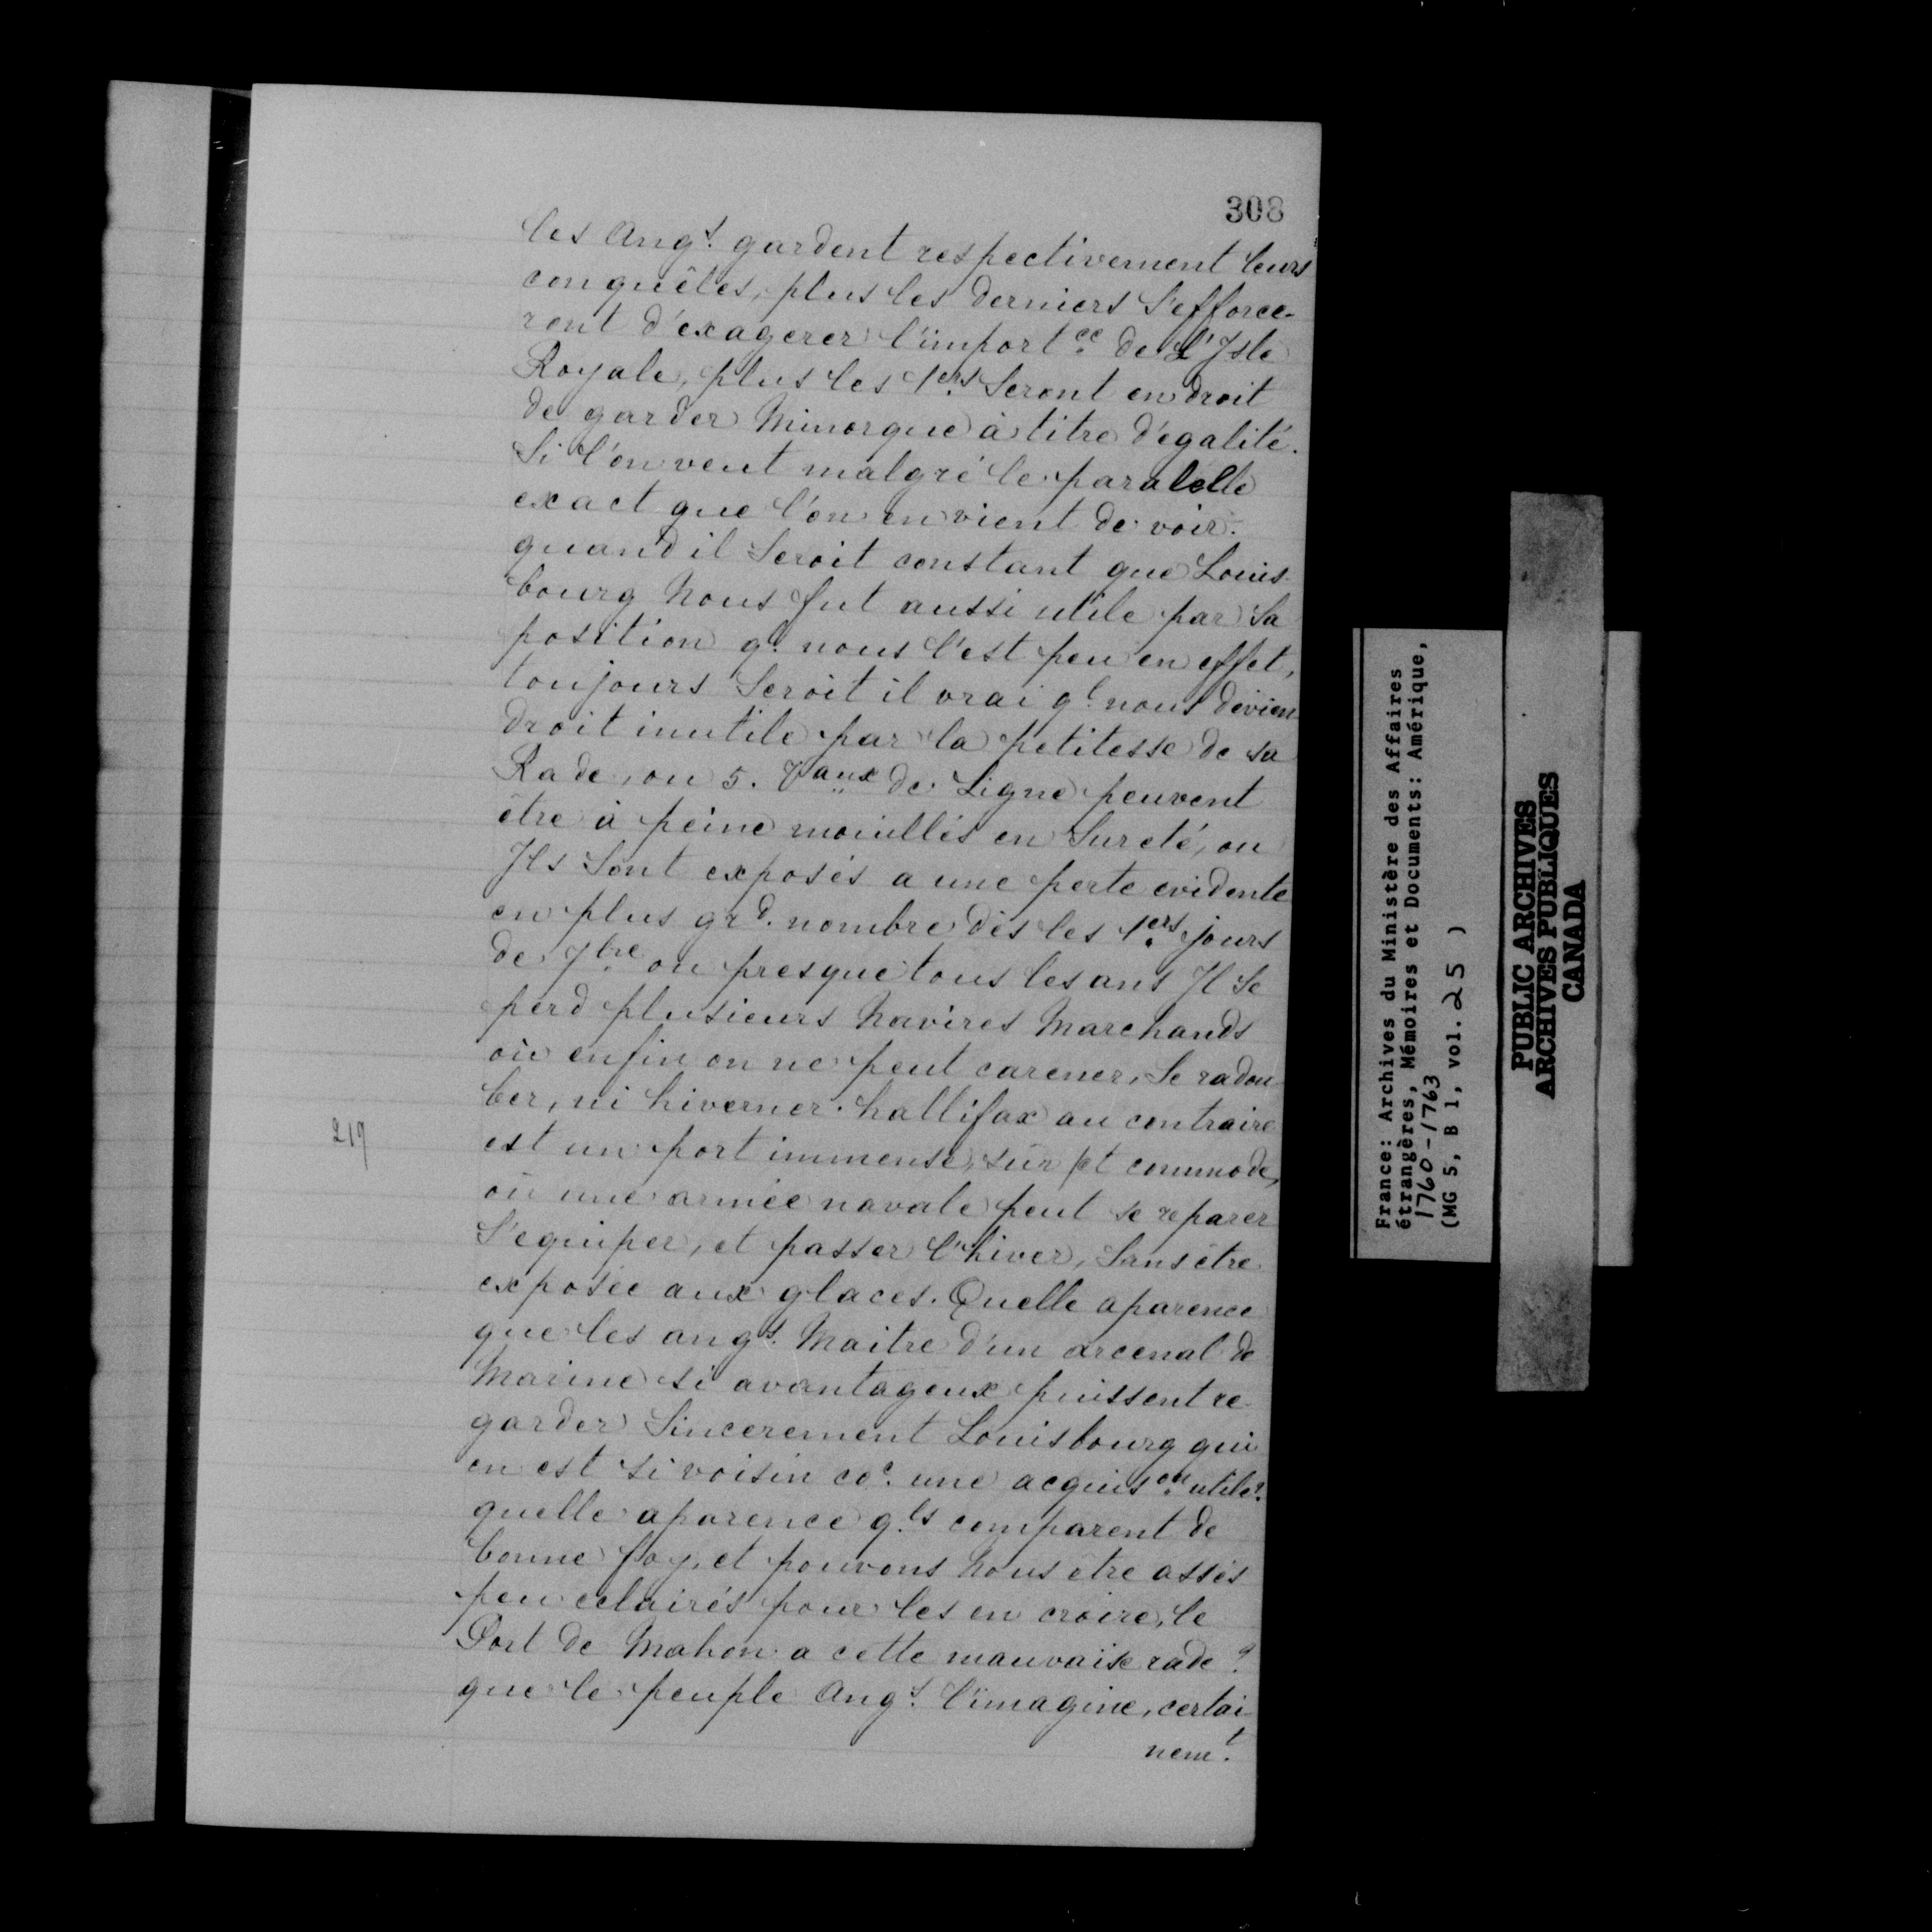 308
les Angs. gardent respectivement leurs
conquêtes, plus les derniers S'efforce-
ront d'exagerer l'importce. de L'Isle
Royale, plus les 1ers. Seront en droit
de garder Minorque à titre d'égalité.
Si l'on veut malgré le paralelle
exact que l'on en vient de voir.
quand il Seroit constant que Louis-
bourg Nous fut aussi utile par Sa
position q. nous l'est peu en effet,
toujours Seroit il vrai ql. nous devien-
droit inutile par la petitesse de sa
Rade, ou 5. Vaux. de Ligne peuvent
être à peine mouillés en Sureté, ou
Ils Sont exposés a une perte evidente
en plus grd. nombre dès les 1ers. jours
de 7bre ou presque tous les ans Il Se
perd plusieurs Navires Marchands
où enfin on ne peut carener, Se radou-
ber, ni hiverner. hallifax au contraire
219
est un port immense, sûr et commode,
où une armée navale peut se reparer
S'equiper, et passer l'hiver, Sans être
exposée aux glaces. Quelle aparence
que les angs. Maitre d'un arcenal de
Marine si avantageux puissent re-
garder Sincerement Louisbourg qui
en est si voisin coe. une acquison. utile?
quelle aparence qls. comparent de
bonne foy, et pouvons Nous être assés
peu eclairés pour les en croire, le
Port de Mahon a cette mauvaise rade?
que le peuple Angs. l'imagine, certai-
nemt.
France: Archives du Ministère des Affaires
étrangères, Mémoires et Documents: Amérique,
1760-1763
(MG 5, B 1, vol. 25 )
PUBLIC ARCHIVES
ARCHIVES PUBLIQUES
CANADA